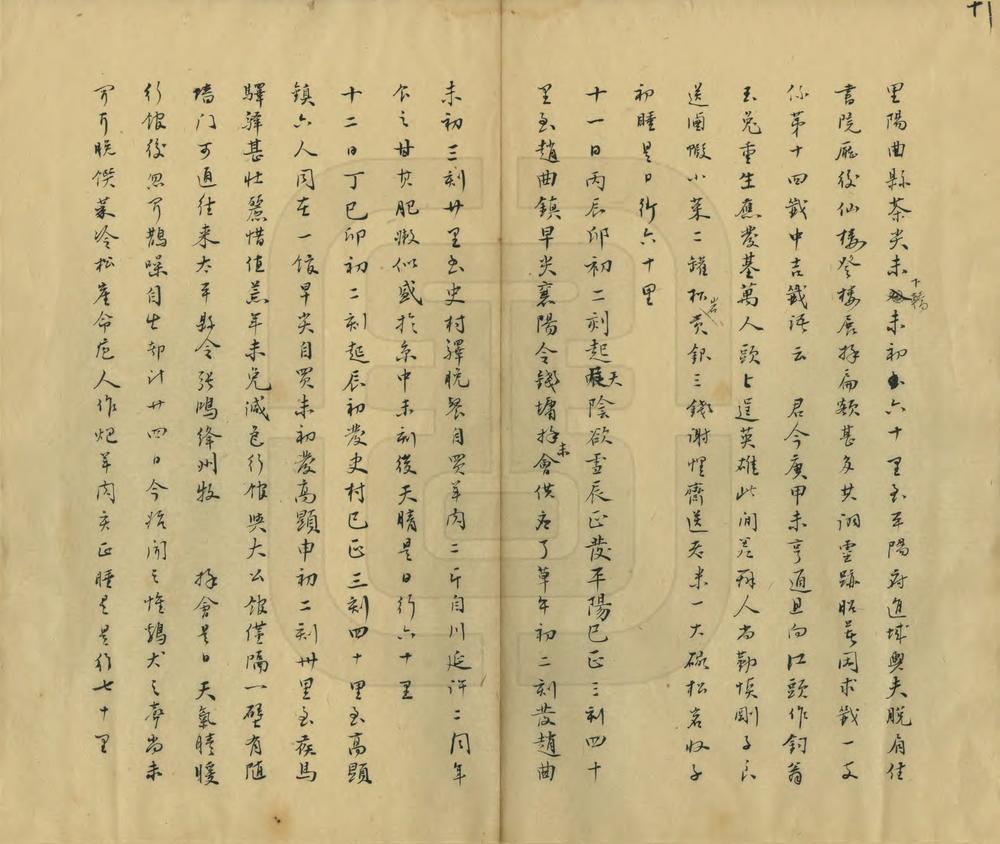 里陽曲縣茶尖未初六十里至平陽府進城輿夫脫肩住
下轎
書院廳後仙樓登樓唇拜扁額甚多其詞靈跡昭著因求籤一支
係第十四籤中吉籤語云 君今庚甲未亨通且向江頭作釣翁
玉兔重生應發基萬人頭上逞英雄此間差孫人尚勤慎剛子良
送滷蝦小菜二罐松岩賞銀三錢謝惺齋送老米一大碗松岩收子
初睡是日行六十里
十一日丙辰卯初二刻起天陰欲雪辰正發平陽巳正三刻四十
里至趙曲鎮早尖襄陽令錢墉未拜會供應了草午初二刻發趙曲
未初三刻廿里至史村驛晚餐自買羊肉二斤自川延許二同年
食之甘其肥嫩似盛於京中未刻後天晴是日行六十里
十二日丁巳卯初二刻起辰初發史村巳正三刻四十里至高顯
鎮六人同在一飯早尖自買未初發高顯申初二刻卅里至侯馬
驛驛甚壯麗惜值荒年未免減色行館與大公館僅隔一壁有随
墻门可通往来太平縣令張鳴絳州牧 拜會是日天氣晴暖
行館後忽聞鵲噪自出都計廿四日今始聞之惟鷄犬之聲尚未
可晚饌菜冷松岩命庖人作炮羊肉亥正睡是日行七十里